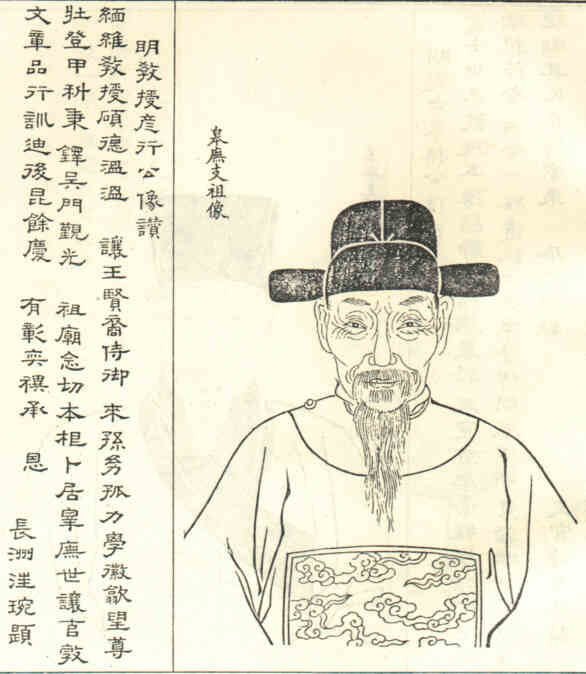 皋廡支祖像
明教授彦行公像讚
緬維教授碩德溫溫 讓王賢裔侍御 來孫孤力學徽望尊
壯登甲科秉 鐸吳門觀光 祖廟念切本卜居皋廡世讓敦
文章品行訓迪後昆餘慶 有彰奕禩承 恩
長洲汪琬題